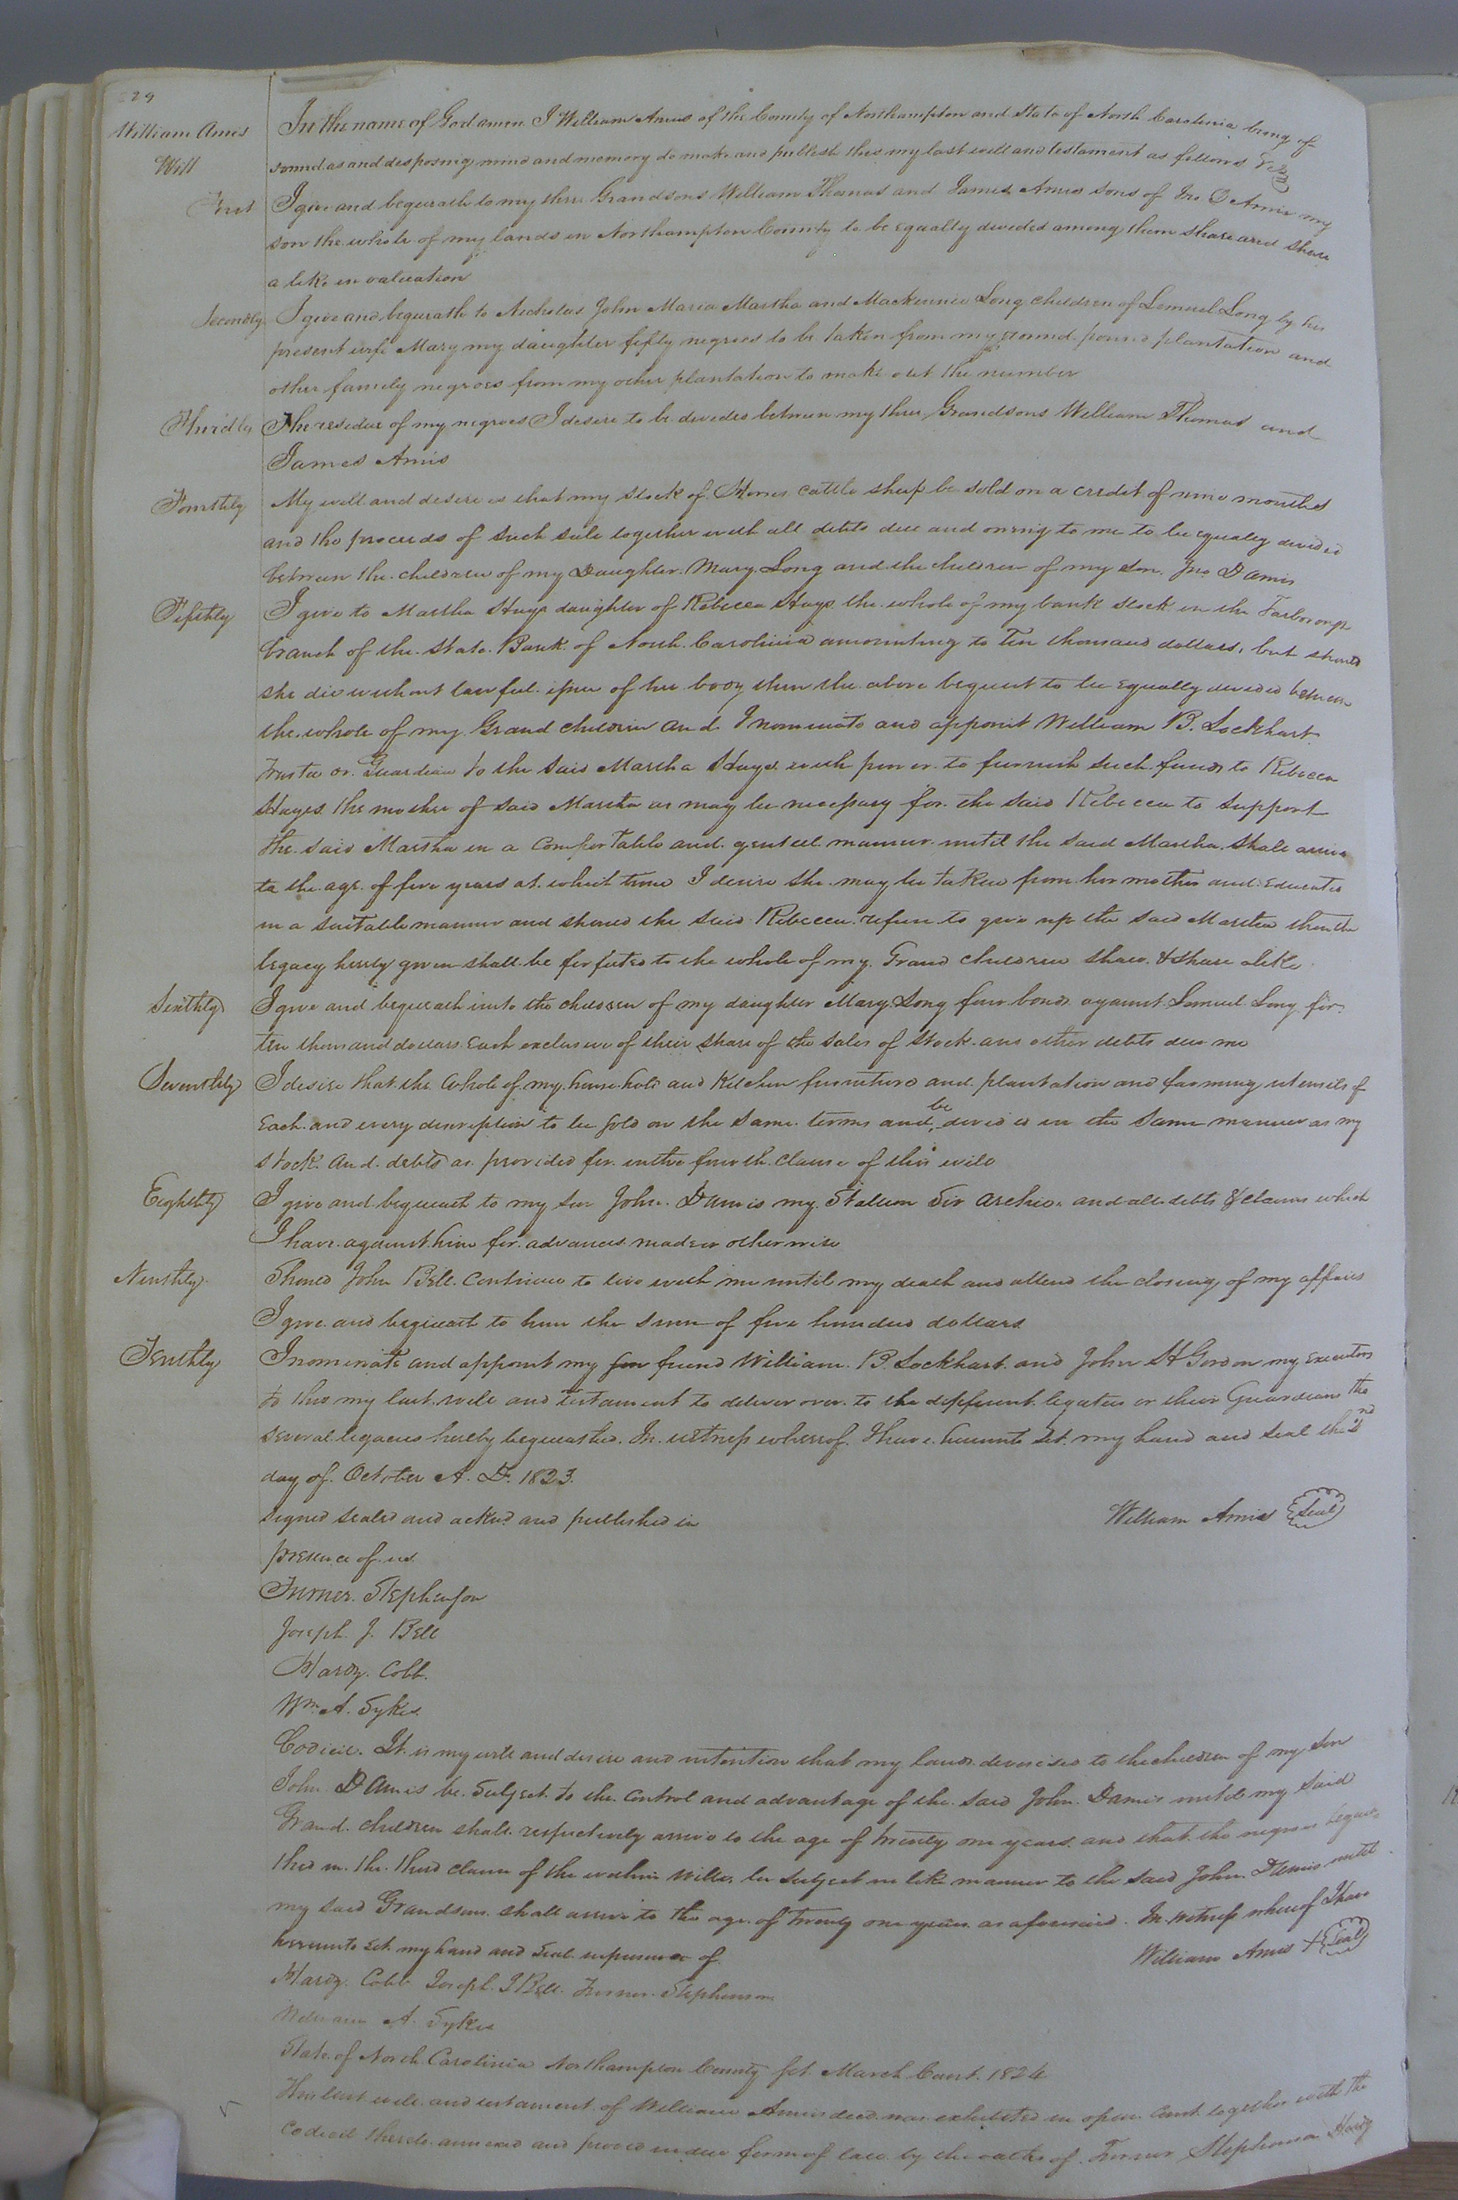 29
William Amis
Will
In the name of God amen I William Amis of the County of Northampton and State of North Carolina being of
sound as and desposing mind and memory do make and publish this my last will and testament as follows
First I give and bequeath to my three Grandsons William Thomas and James Amis sons of Jno D Amis my
son the whole of my lands in Northampton County to be equally divided among them share and share
a like in valuation
Secondly I give and bequeath to Nicholas John Maria Martha and Mackennie Long children of Lemuel Long by his
present wife Mary my daughter fifty negroes to be taken from my pound plantation and
other family negroes from my other plantation to make out the number
Thirdly The residue of my negroes I desire to be divided between my three Grandsons William Thomas and
James Amis
Fourthly My will and desire is that my stock of Horses cattle sheep be sold on a credit of nine months
and the proceeds of such sale together with all debts due and owing to me to be equally divided
between the children of my Daughter Mary Long and the children of my son Jno D Amis
Fifthly I give to Martha Hays daughter of Rebecca Hays the whole of my bank stock in the Tarborough
branch of the State Bank of North Carolina amounting to Ten thousand dollars, but should
she die without lawful issue of her body then the above bequest to be equally divided between
the whole of my Grand children and I nominate and appoint William B. Lockhart
Trustee or Guardian to the said Martha Hays with power to furnish such funds to Rebecca
Hayes the mother of said Martha as may be necessary for the said Rebecca to support
the said Martha in a comfortable and genteel manner until the said Martha shall arrive
to the age of five years at which time I desire she may be taken from her mother and Educated
in a suitable manner and should the said Rebecca refuse to give up the said Martha then the
legacy hereby given shall be forfeited to the whole of my Grand children share & share alike
Sixthly I give and bequeath unto the children of my daughter Mary Long four bonds against Lemuel Long for
ten thousand dollars Each exclusive of their share of the sales of stock and other debts due me
Seventhly I desire that the whole of my house hold and Kitchen furniture and plantation and farming utensils of
Each and every description to be sold on the same terms and be divided in the same manner as my
stock and debts as provided for in the fourth clause of this will
Eighthly I give and bequeath to my son John D Amis my Stallion Sir Archie and all debts & claims which
I have against him for advances made or otherwise
Ninthly Should John Bell continue to live with me until my death and attend the closing of my affairs
I give and bequeath to him the sum of five hundred dollars
Tenthly I nominate and appoint my friend William B Lockhart and John H Gordon my Executors
to this my last will and testament to deliver over to the different legatees or their Guardians the
several legacies hereby bequeathed. In witness whereof I have hereunto set my hand and seal the 2nd
day of October A. D. 1823.
signed sealed and acknd and published in William Amis Seal
presence of us
Turner Stephenson
Joseph J. Bell
Hardy Cobb
Wm A. Sykes
Codicil. It is my will and desire and intention that my lands devised to the children of my son
John D Amis be subject to the control and advantage of the said John D Amis until my said
Grand children shall respectively arrive to the age of twenty one years and that the negroes bequea-
thed in the third clause of the within will be subject in like manner to the said John D Amis until
my said Grandsons shall arrive to the age of twenty one years as aforesaid. In witness whereof I have
hereunto set my hand and seal in presence of William Amis + Seal
Hardy Cobb Joseph J Bell Turner Stephenson
William A. Sykes
State of North Carolina Northampton County Sct March Court 1824
This last will and testament of William Amis decd was exhibited in open Court together with the
codicil thereto annexed and proved in due form of law by the oaths of Turner Stephenson Hardy